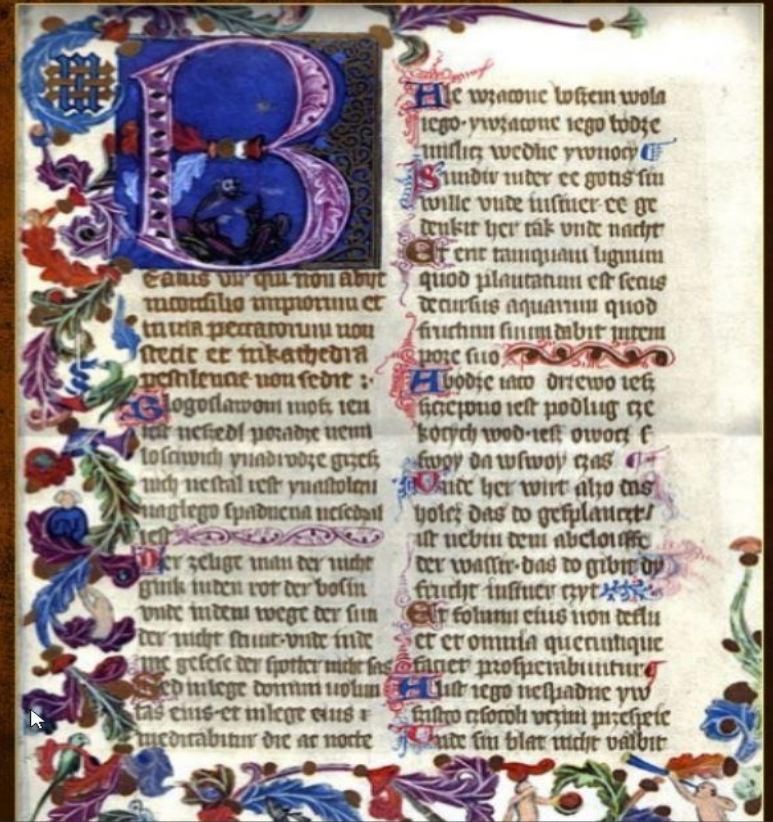 B
Eatus vir qui non abyt
inconsilio impiorum et
in via peccatorum non
stetit et inkathedra
pestilencie non sedit :·
Blogoslawoni mosz ien
iest neszedl poradze nemi
losciwich ynadrodze grzesz
nich nestal iest ynastolcu
naglego spadnena nesedzal
iest
Der zelige man der nicht
gink inden rot der bosin
vnde indem wege der sun
der nicht stunt·vnde inde
me gesese der spotter nicht sas
Sed inlege domini volun
tas eius·et inlege eius
meditabitur die ac nocte
Ale wzacone boszem wola
iego·ywzacone iego bodze
mislicz wedne ywnocy
Sundir inder ee gotis sin
wille vnde insiner ee ge
denkit her tak vnde nacht
Et erit tamquam lignum
quod plantatum est secus
decursus aquarum quod
fructum suum dabit intem
pore suo
Abodze iaco drzewo iesz
sczepono iest podlug cze
kocych wod·iesz owocz s
swoy da wswoy czas
Unde her wirt alzo das
holcz das do gesplanczt
ist nebin dem abelouffe
der wasser·das do gibit dy
frucht insiner czyt
Et folium eius non deflu
et et omnia quecunque
faciet prosperabuntur
Alist iego nespadne yw
szistco czsocoli vczini przespeie
Unde sin blat nicht valbit